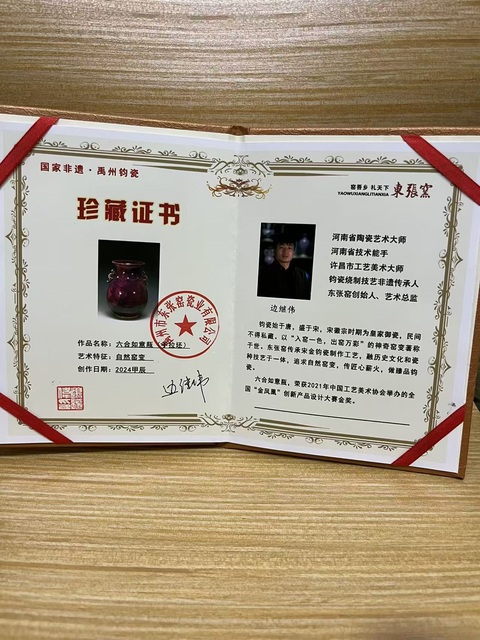 国家非遗·禹州钧瓷
珍藏证书
作品名称:六合如意瓶(手拉坯)
艺术特征:自然窑变
创作日期:2024甲辰
州市东张窑瓷业有限公司
边继伟
窑吾乡 礼天下
YAOWUXIANGLITIANXIA
東張窯
河南省陶瓷艺术大师
河南省技术能手
许昌市工艺美术大师
钧瓷烧制技艺非遗传承人
东张窑创始人、艺术总监
边继伟
钧瓷始于唐,盛于宋,宋徽宗时期为皇家御瓷,民间
不得私藏。以“入窑一色,出窑万彩”的神奇窑变著称
于世。东张窑传承宋金钧瓷制作工艺,融历史文化和瓷
种技艺于一体,追求自然窑变,传匠心薪火,做臻品钧
瓷。
六合如意瓶,荣获2021年中国工艺美术协会举办的全
国“金凤凰”创新产品设计大赛金奖。